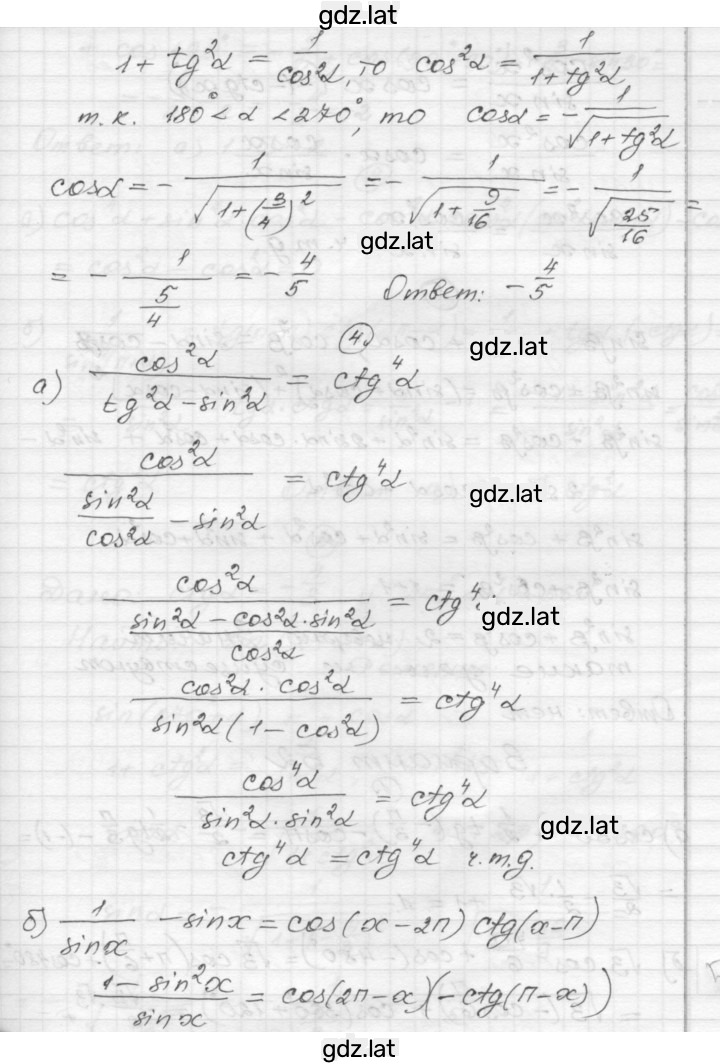 gdz.lat
1 + tg²α = 1/cos²α, то cos²α = 1/(1 + tg²α)
т.к. 180° < α < 270°, то cosα = - 1/√(1 + tg²α)
cosα = - 1/√(1 + (3/4)²) = - 1/√(1 + 9/16) = - 1/√(25/16) =
gdz.lat
= - 1/(5/4) = - 4/5 Ответ: - 4/5
4.
gdz.lat
а) cos²α/(tg²α - sin²α) = ctg⁴α
cos²α/(sin²α/cos²α - sin²α) = ctg⁴α
gdz.lat
cos²α/((sin²α - cos²α · sin²α)/cos²α) = ctg⁴
gdz.lat
cos²α · cos²α/(sin²α(1 - cos²α)) = ctg⁴α
cos⁴α/(sin²α · sin²α) = ctg⁴α
gdz.lat
ctg⁴α = ctg⁴α ч.т.д.
б) 1/sinx - sinx = cos(x - 2π) ctg(x - π)
(1 - sin²x)/sinx = cos(2π - x)(-ctg(π - x))
gdz.lat